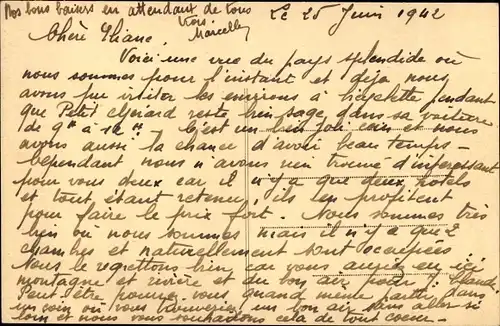 Nos bons baisers en attendant de vous
voir. Marcelle
Le 25 Juin 1942
Chère Eliane,
Voici une vue du pays splendide où
nous sommes pour l'instant et déjà nous
avons pu visiter les environs à bicyclette pendant
que Petit Gérard reste bien sage dans sa voiture
de 9h à 12h. C'est un bien joli coin et nous
avons aussi la chance d'avoir beau temps -
Cependant nous n'avons rien trouvé d'intéressant
pour vous deux car il n'y a que deux hotels
et tout étant retenu, ils en profitent
pour faire le prix fort. Nous sommes très
bien où nous sommes mais il n'y a que 2
chambres et naturellement sont occupées
Nous le regrettons bien car vous auriez eu ici
montagne et rivière et du bon air pour Claude
Peut être pourrez vous quand même partir dans
un coin où vous trouveriez un bon air sans aller si
loin et nous vous souhaitons cela de tout coeur -